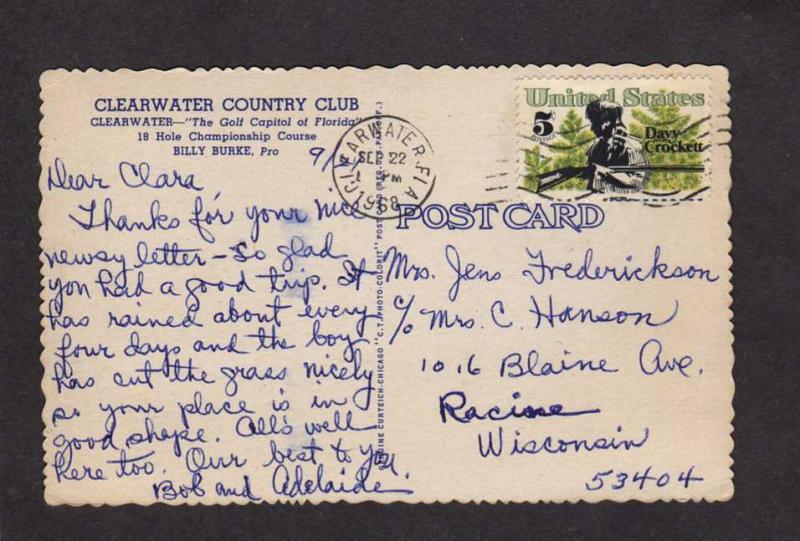 CLEARWATER COUNTRY CLUB
CLEARWATER—"The Golf Capitol of Florida"
18 Hole Championship Course
BILLY BURKE, Pro
Dear Clara,
Thanks for your nice
newsy letter - So glad
you had a good trip. It
has rained about every
four days and the boy
has cut the grass nicely
so your place is in
good shape. All's well
here too. Our best to you.
Bob and Adelaide.
CLEARWATER, FLA
SEP 22
PM
1968
United States
5
Davy
Crockett
POST CARD
Mrs. Jens Frederickson
c/o Mrs. C. Hanson
1016 Blaine Ave.
Racine
Wisconsin
53404
CURTEICH-CHICAGO "C.T. PHOTO-COLORIT" POST